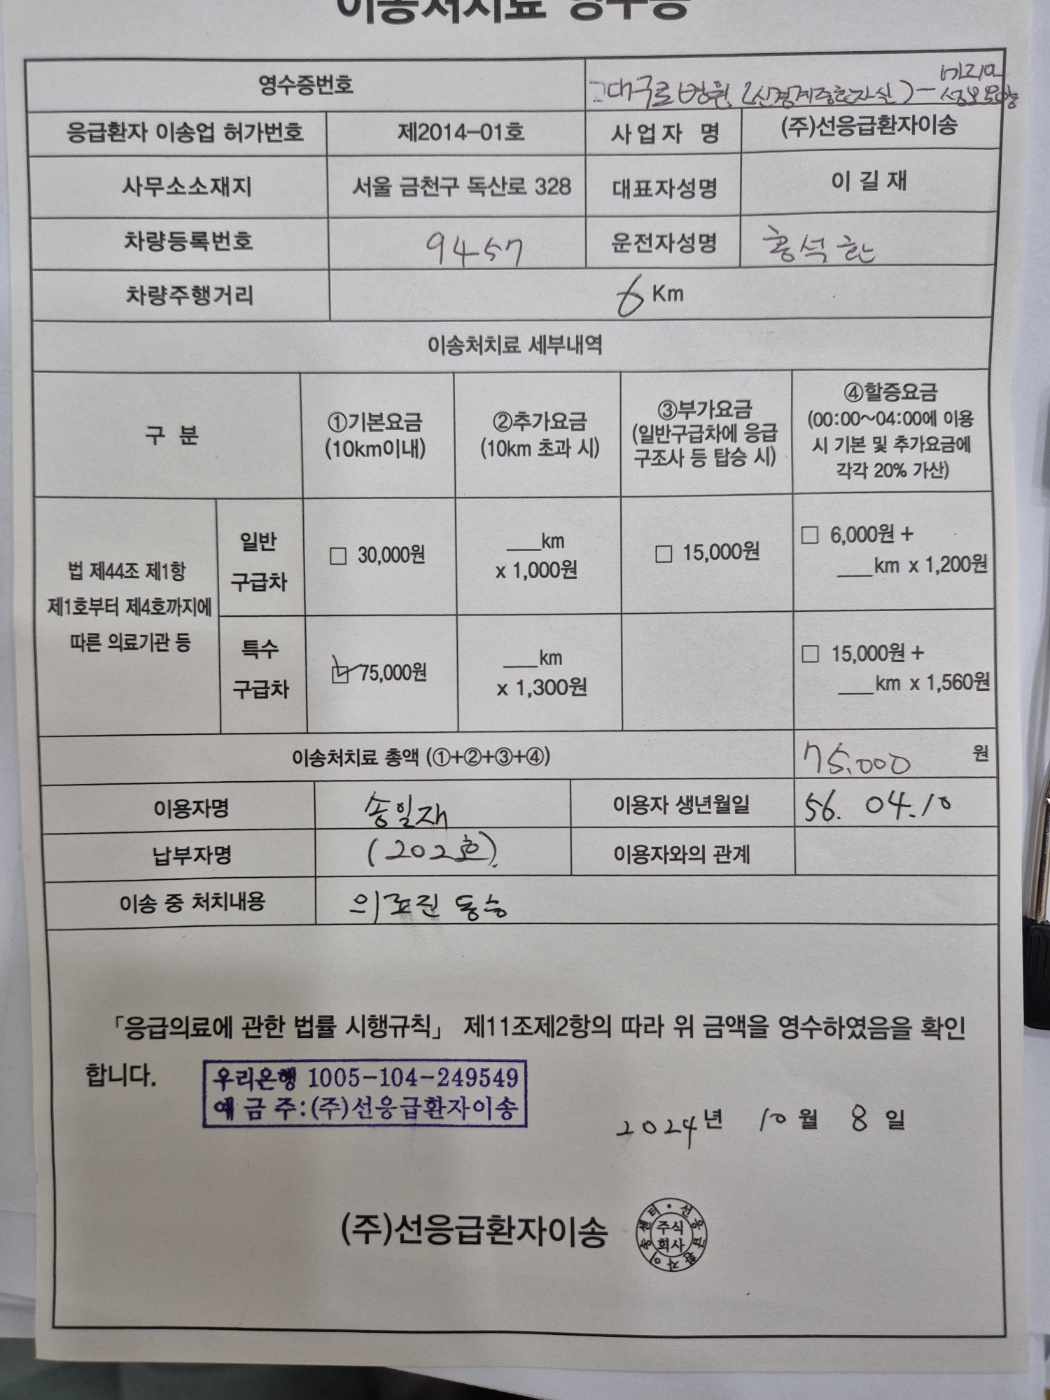 이송처치료 영수증
영수증번호 고대구로병원 (신경계중환자실) -
응급환자 이송업 허가번호 제2014-01호 사업자 명 (주)선응급환자이송
사무소소재지 서울 금천구 독산로 328 대표자성명 이길재
차량등록번호 9457 운전자성명 홍석환
차량주행거리 6 Km
이송처치료 세부내역
구 분 ①기본요금 (10km이내) ②추가요금 (10km 초과 시) ③부가요금 (일반구급차에 응급 구조사 등 탑승 시) ④할증요금 (00:00~04:00에 이용 시 기본 및 추가요금에 각각 20% 가산)
법 제44조 제1항 제1호부터 제4호까지에 따른 의료기관 등
일반 구급차 □ 30,000원 ___km x 1,000원 □ 15,000원 □ 6,000원 + ___km x 1,200원
특수 구급차 ☑ 75,000원 ___km x 1,300원 □ 15,000원 + ___km x 1,560원
이송처치료 총액 (①+②+③+④) 75,000 원
이용자명 송일재 이용자 생년월일 56. 04. 10
납부자명 (202호) 이용자와의 관계
이송 중 처치내용 의료진 동승
「응급의료에 관한 법률 시행규칙」 제11조제2항의 따라 위 금액을 영수하였음을 확인
합니다.
우리은행 1005-104-249549
예금주:(주)선응급환자이송
2024년 10월 8일
(주)선응급환자이송
주식
회사